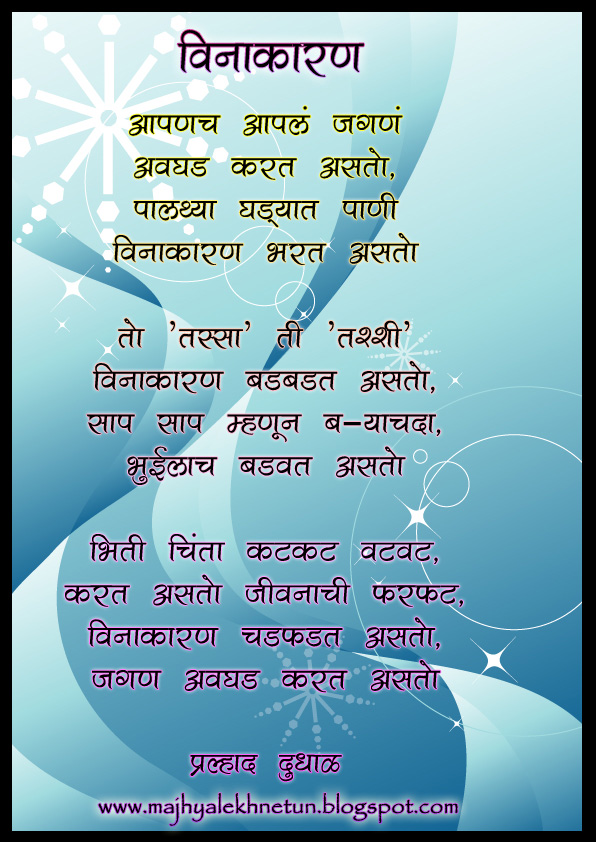 विनाकारण
आपणच आपलं जगणं
अवघड करत असतो,
पालथ्या घड्यात पाणी
विनाकारण भरत असतो
तो 'तस्सा' ती 'तश्शी'
विनाकारण बडबडत असतो,
साप साप म्हणून ब-याचदा,
भुईलाच बडवत असतो
भिती चिंता कटकट वटवट,
करत असतो जीवनाची फरफट,
विनाकारण चडफडत असतो,
जगण अवघड करत असतो
प्रल्हाद दुधाळ
www.majhyalekhnetun.blogspot.com